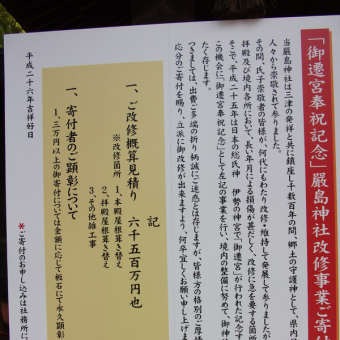 「御遷宮奉祝記念」厳島神社改修事業ご寄付
当厳島神社は三津の発祥と共に鎮座し千数百年の間、郷土の守護神として、県内
人々から崇敬されて参りました。
その間、氏子崇敬者の皆様が、何代にもわたり改修・維持して発展して参りましたが
拝殿及び境内各所において、長い年月による損傷が甚だしく、改修に急を要する箇所
そこで、平成二十五年は日本の総氏神 伊勢の神宮で「御遷宮」が行われた記念す
この機会に、「御遷宮奉祝記念」として左記の事業を行い、境内の整備に努めて、御神
たく存じます。
つきましては、出費ご多端の折り柄誠にご迷惑とは存じますが、皆様方の格別のご厚
応分のご寄付を賜り、立派に御改修が出来ますよう、何卒宜しくお願い申し上げま
記
一、ご改修概算見積り 六千五百万円也
※改修箇所
1、本殿屋根葺き替え
2、拝殿屋根葺き替え
3、その他雑工事
一、寄付者のご顕彰について
1、三万円以上の御寄付については金額に応じて板石にて永久顕彰
平成二十六年吉祥好日
※ご寄付のお申し込は社務所に